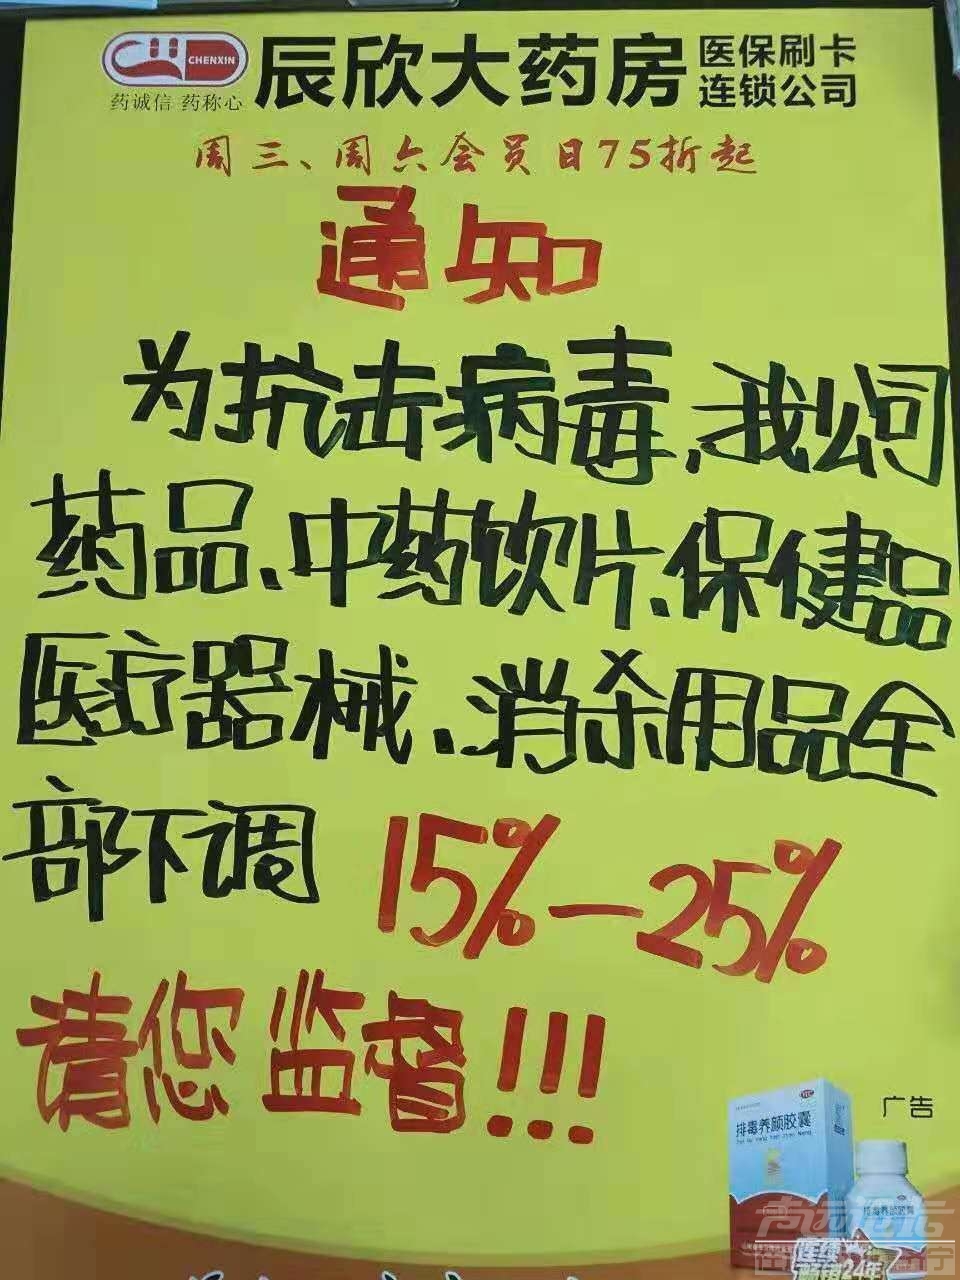 CHENXIN
药诚信 药称心
辰欣大药房
医保刷卡
连锁公司
周三、周六会员日75折起
通知
为抗击病毒,我公司
药品、中药饮片、保健品
医疗器械、消杀用品全
部下调 15%—25%
请您监督!!!
广告
排毒养颜胶囊
排毒养颜胶囊
连续
畅销24年